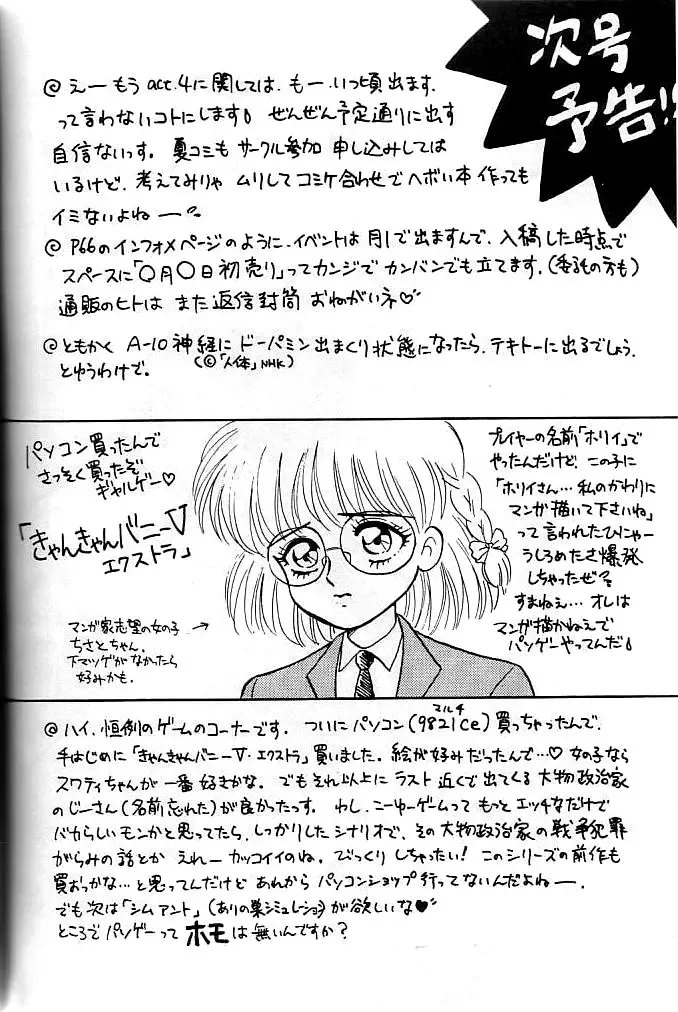 次号
予告!!
@ えーもう act.4に関しては、もー、いつ頃出ます、
って言わないコトにします。ぜんぜん予定通りに出す
自信ないっす。夏コミもサークル参加申し込みしては
いるけど、考えてみりゃムリしてコミケ合わせでヘボい本作っても
イミないよねー。
@ P66のインフォメページのように、イベントは月1で出ますんで、入稿した時点で
スペースに「〇月〇日初売り」ってカンジでカンバンでも立てます。(委託の方も)
通販のヒトはまた返信封筒おねがいネ♡
@ともかく A-10神経にドーパミン出まくり状態になったら、テキトーに出るでしょう。
(©「人体」NHK)
とゆうわけで。
パソコン買ったんで
さっそく買ったぞ
ギャルゲー♡
「きゃんきゃんバニーV
エクストラ」
マンガ家志望の女の子→
ちさとちゃん。
下マツゲがなかったら
好みかも。
プレイヤーの名前「ホリイ」で
やったんだけど、この子に
「ホリイさん…私のかわりに
マンガ描いて下さいね」
って言われたひにゃー
うしろめたさ爆発
しちゃったぜ
すまねえ…オレは
マンガ描かねえで
パソゲーやってんだ
@ハイ、恒例のゲームのコーナーです。ついにパソコン(9821Ce)買っちゃったんで、
マルチ
手はじめに「きゃんきゃんバニーV・エクストラ」買いました。絵が好みだったんで…♡女の子なら
スワティちゃんが一番好きかな。でもそれ以上にラスト近くで出てくる大物政治家
のじーさん(名前忘れた)が良かったっす。わし、こーゆーゲームってもっとエッチなだけで
バカらしいモンかと思ってたら、しっかりしたシナリオで、その大物政治家の戦争犯罪
がらみの話とかえれーカッコイイのね。びっくりしちゃったい!このシリーズの前作も
買おっかな…と思ってんだけどあれからパソコンショップ行ってないんだよねー。
でも次は「シムアント」(ありの巣シミュレーション)が欲しいな♥
ところでパソゲーってホモは無いんですか?